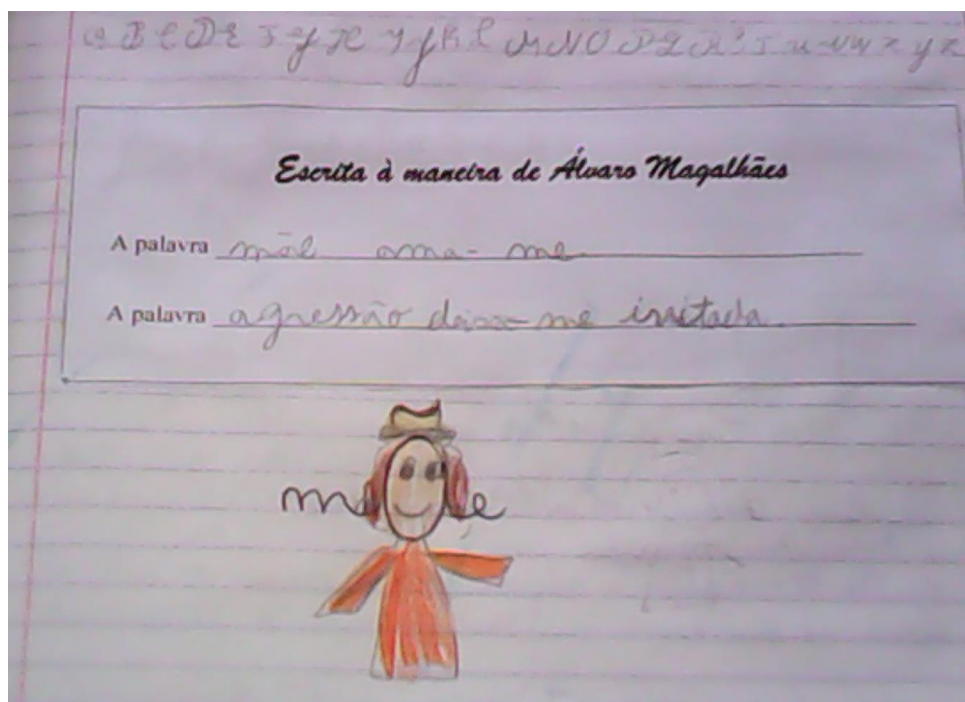 a B C D E F G H I J K L M N O P Q R S T U V W X Y Z
Escrita à maneira de Álvaro Magalhães
A palavra mãe ama-me
A palavra agressão deixa-me irritada